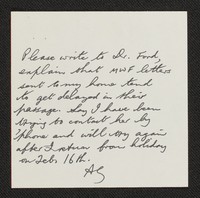 Please write to Dr. Ford,
explain that MWF letters
sent to my home tend
to get delayed in their
passage. Say I have been
trying to contact her by
'phone and will try again
after I return from holiday
on Feb 16th.
AG